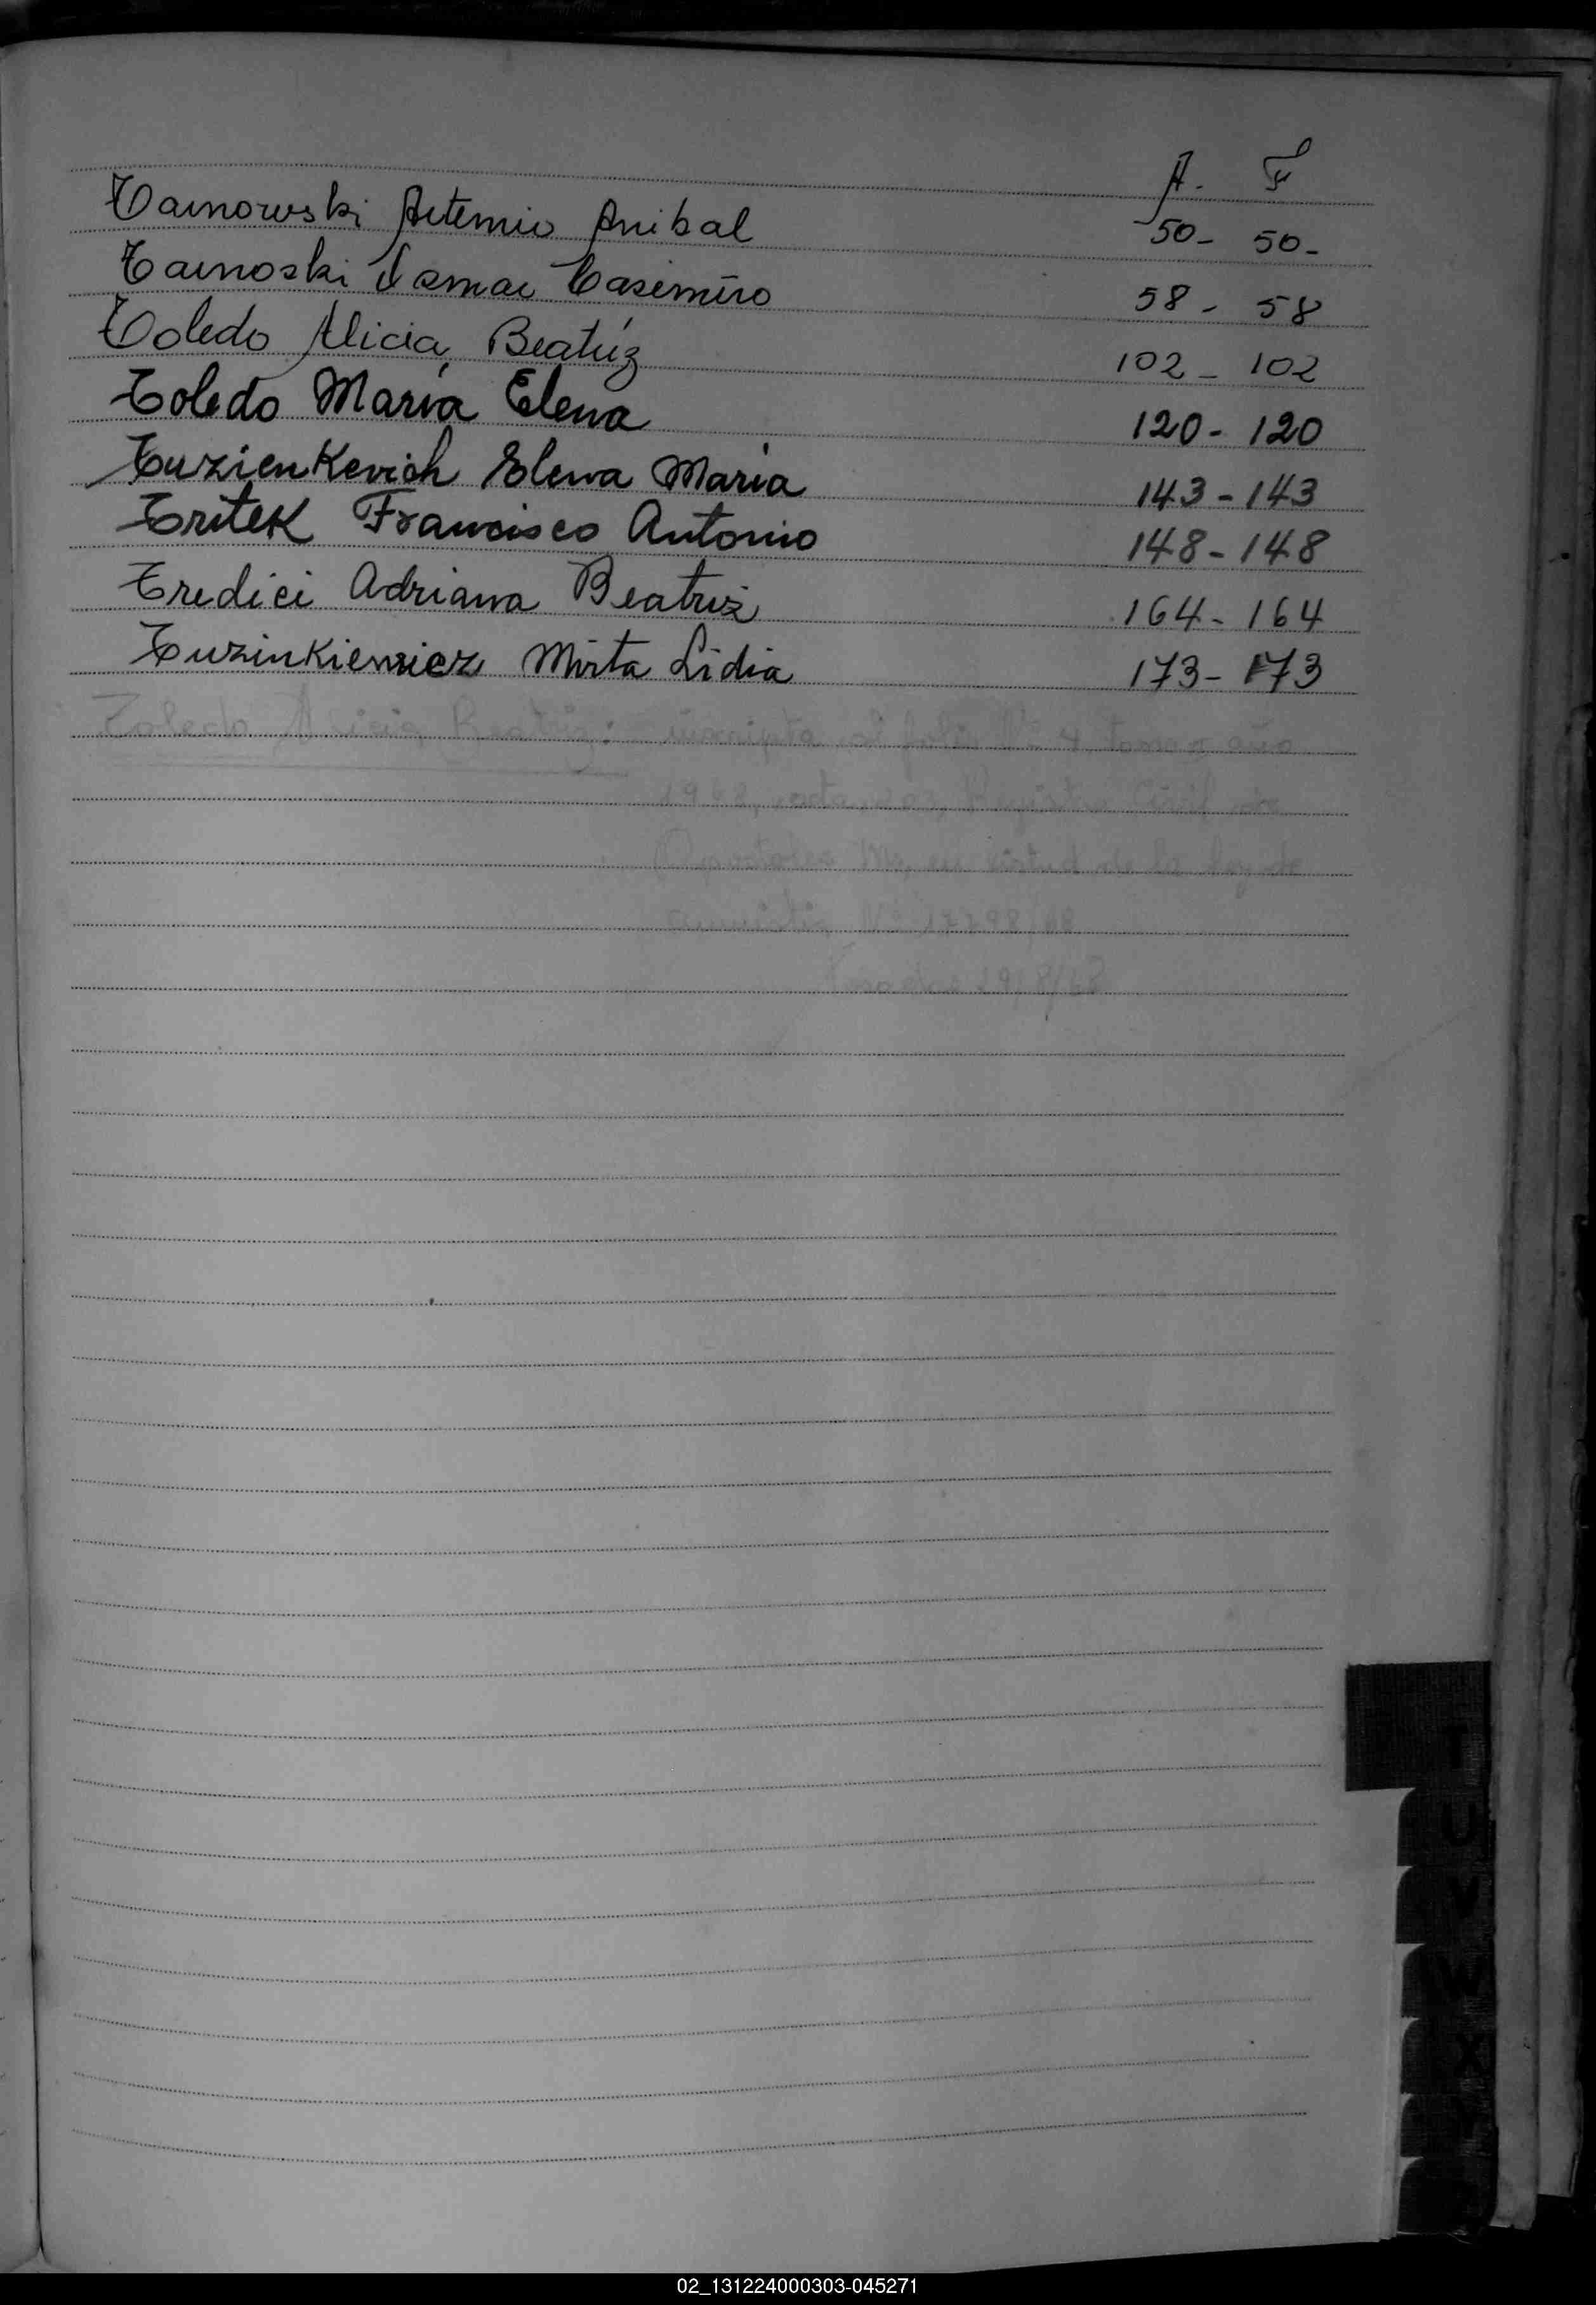 A. F
Tarnowski Artemio Anibal 50- 50-
Tarnoski Osmar Casemiro 58- 58
Toledo Alicia Beatríz 102- 102
Toledo María Elena 120- 120
Tuzienkevich Elena María 143-143
Tritek Francisco Antonio 148-148
Tredici Adriana Beatriz 164- 164
Tuzinkiewicz Mirta Lidia 173- 173
Toledo Alicia Beatriz: inscripta al folio tomo año
Registro Civil
Apostoles Mnes, en virtud de la ley de
amnistia Nº
Posadas
T
U
V
W
X
02_131224000303-045271